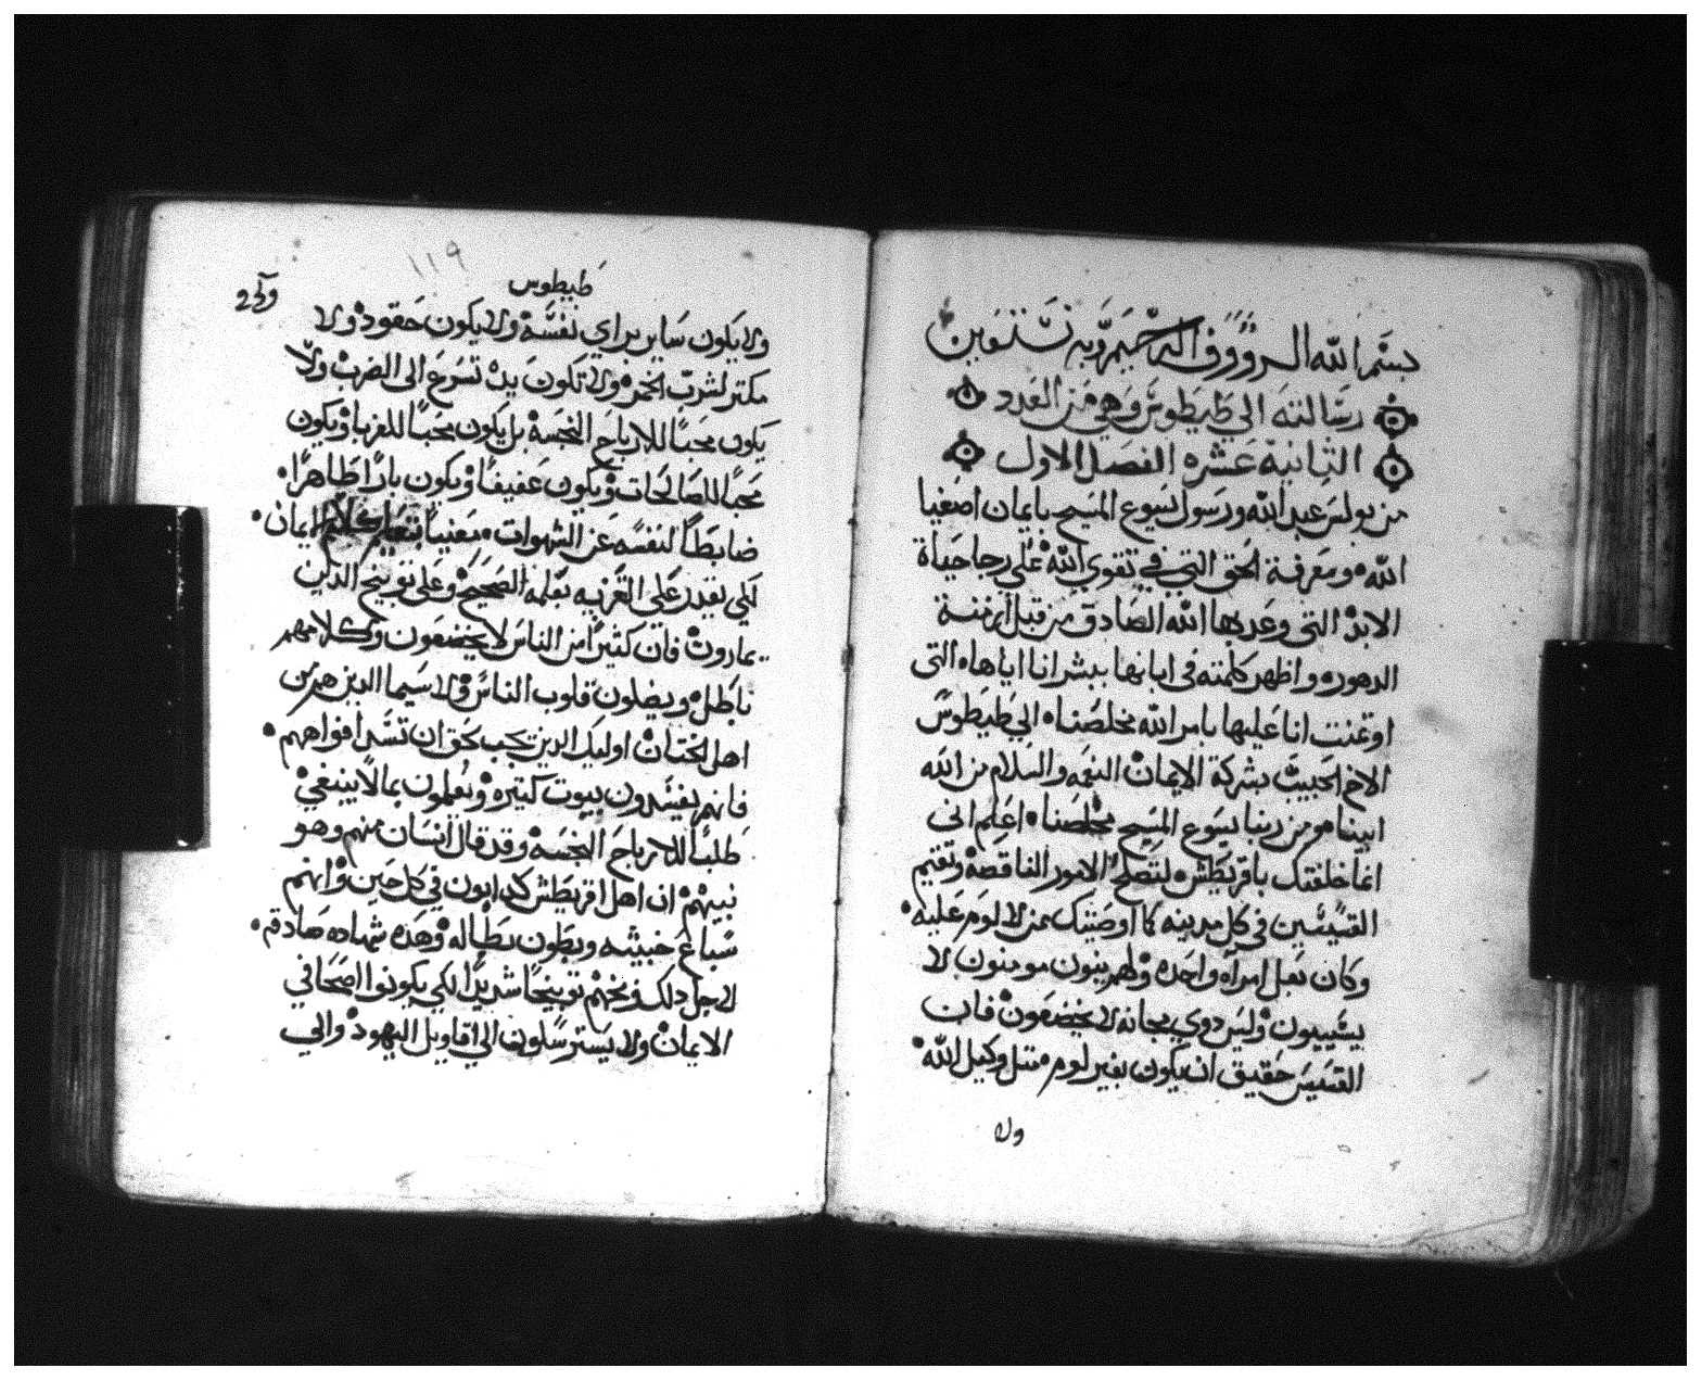 بسم الله الرووف الرحيم وبه نستعين
رسالته الي طيطوس وهي من العدد
الثانية عشره الفصل الاول
من بولس عبد الله ورسول يسوع المسيح بايمان اصفيا
الله ومعرفة الحق التي في تقوي الله علي رجا حياة
الابد التي وعد بها الله الصادق من قبل ازمنة
الدهور واظهر كلمته في ابانها ببشرانا اياها التي
اوتمنت انا عليها بامر الله مخلصنا الي طيطوس
الاخ الحبيب بشركة الايمان النعمه والسلام من الله
ابينا ومن ربنا يسوع المسيح مخلصنا اعلم اني
انما خلفتك باقريطش لتصلح الامور الناقصة وتقيم
القسيسين في كل مدينه كما اوصيتك بمن لا لوم عليه
وكان بعل امراه واحده ولهم بنون مومنون لا
يسبيون وليس دوي مجانه لا يخضعون فان
القسيس حقيق ان يكون بغير لوم متل وكيل الله
ولا
طيطوس
١١٩
ولا يكون ساير براي نفسه ولا يكون حقود ولا
مكتر لشرب الخمر ولا تكون يده تسرع الى الضرب ولا
يكون محبا للارباح النجسه بل يكون محبا للغربا ويكون
محبا للصالحات ويكون عفيفا ويكون بارا طاهرا
ضابطا لنفسه عن الشهوات معنيا بتعليم كلام الايمان
لكي يقدر علي التعزيه بعلمه الصحيح وعلى توبيخ الدين
يمارون فان كثيرا من الناس لا يخضعون وكلامهم
باطل ويضلون قلوب الناس ولا سيما الدين هم من
اهل الختان اوليك الدين يجب بحق ان تسد افواههم
فانهم يفسدون بيوت كتيره ويعلمون بما لا ينبغي
طلبا للارباح النجسه وقد قال انسان منهم وهو
نبيهم ان اهل اقريطش كدابون في كل حين وانهم
سباع خبيثه وبطون بطاله وهده شهاده صادقه
لاجل دلك فوبخهم توبيخا شديدا لكي يكونوا اصحا في
الايمان ولا يسترسلون الي اقاويل اليهود والي